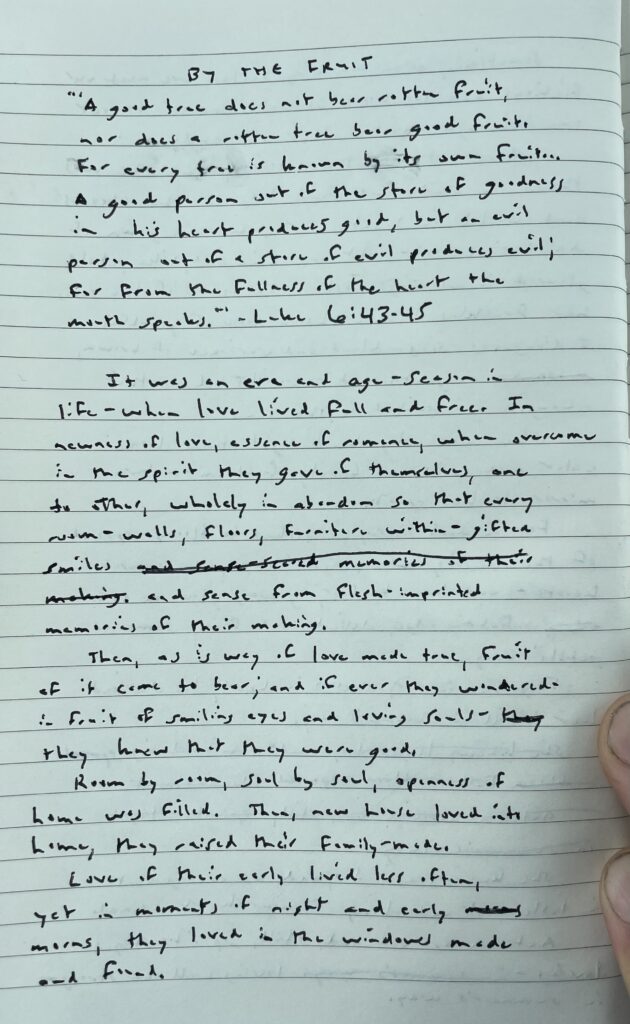 BY THE FRUIT
"'A good tree does not bear rotten fruit,
nor does a rotten tree bear good fruit.
For every tree is known by its own fruit...
A good person out of the store of goodness
in his heart produces good, but an evil
person out of a store of evil produces evil;
for from the fullness of the heart the
mouth speaks."' - Luke 6:43-45
It was an era and age - season in
life - when love lived full and free. In
newness of love, essence of romance, when overcome
in the spirit they gave of themselves, one
to other, wholely in abandon so that every
room - walls, floors, furniture within - gifted
smiles and sense-seared memories of their
making. and sense from flesh-imprinted
memories of their making.
Then, as is way of love made true, fruit
of it came to bear; and if ever they wondered -
in fruit of smiling eyes and loving souls - they
they knew that they were good.
Room by room, soul by soul, openness of
home was filled. Then, new house loved into
home, they raised their family-made.
Love of their early lived less often,
yet in moments of night and early
morns, they loved in the windows made
and found.